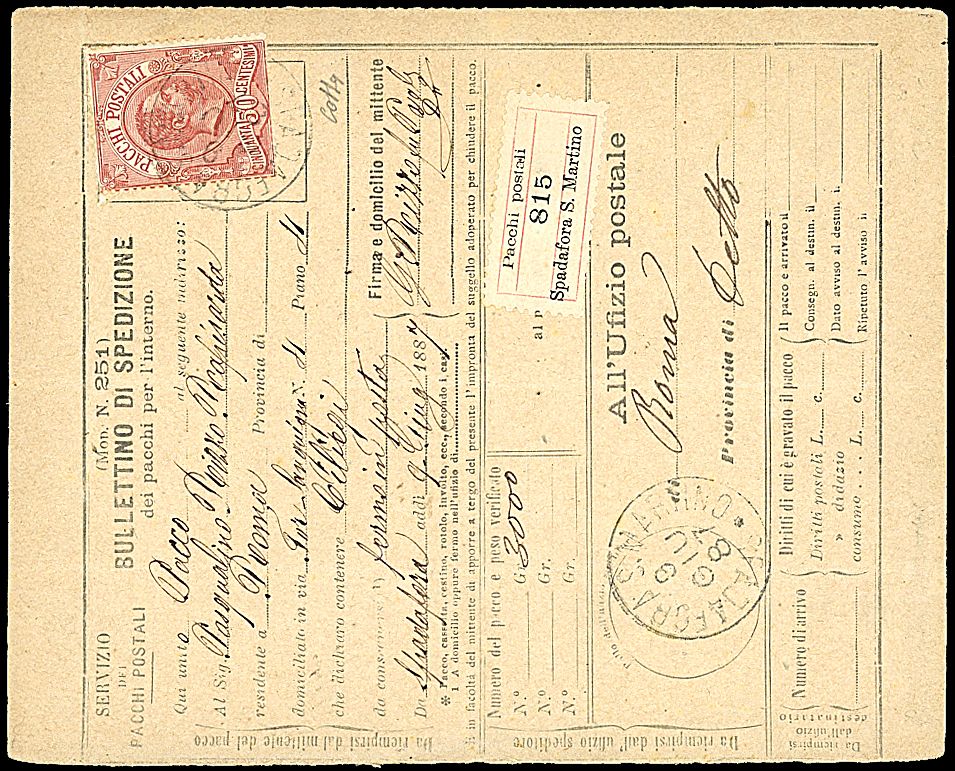 SERVIZIO
DEI
PACCHI POSTALI
(Mod. N. 251)
BULLETTINO DI SPEDIZIONE
dei pacchi per l'interno.
PACCHI POSTALI
CINQUANTA 50 CENTESIMI
Qui unito Pacco al seguente indirizzo:
Al Sig. Pasqualino
residente a Roma Provincia di
domiciliato in via Piano
che dichiaro contenere Ciliegi
da consegnarsi 1) fermo in posta
Da Spadafora addì 9 Giug 1887
Firma e domicilio del mittente
* Pacco, cassetta, cestino, rotolo, involto, ecc., secondo i casi
1 A domicilio oppure fermo nell'uffizio di
È in facoltà del mittente di apporre a tergo del presente l'impronta del suggello adoperato per chiudere il pacco.
Da riempirsi dal mittente del pacco
Numero del pacco e peso verificato
N.° Gr. 3000
N.° Gr.
N.° Gr.
al p
Pacchi postali
815
Spadafora S. Martino
Da riempirsi dall'uffizio speditore
All'Uffizio postale
di Roma
Provincia di Detto
Bollo
SPADAFORA S. MARTINO
9 GIU 87
Numero di arrivo
Diritti di cui è gravato il pacco
Diritti postali L. c.
» di dazio
consumo L. c.
Il pacco è arrivato il
Consegn. al destin. il
Dato avviso al destin. il
Ripetuto l'avviso il
Da riempirsi
dall'uffizio
destinatario